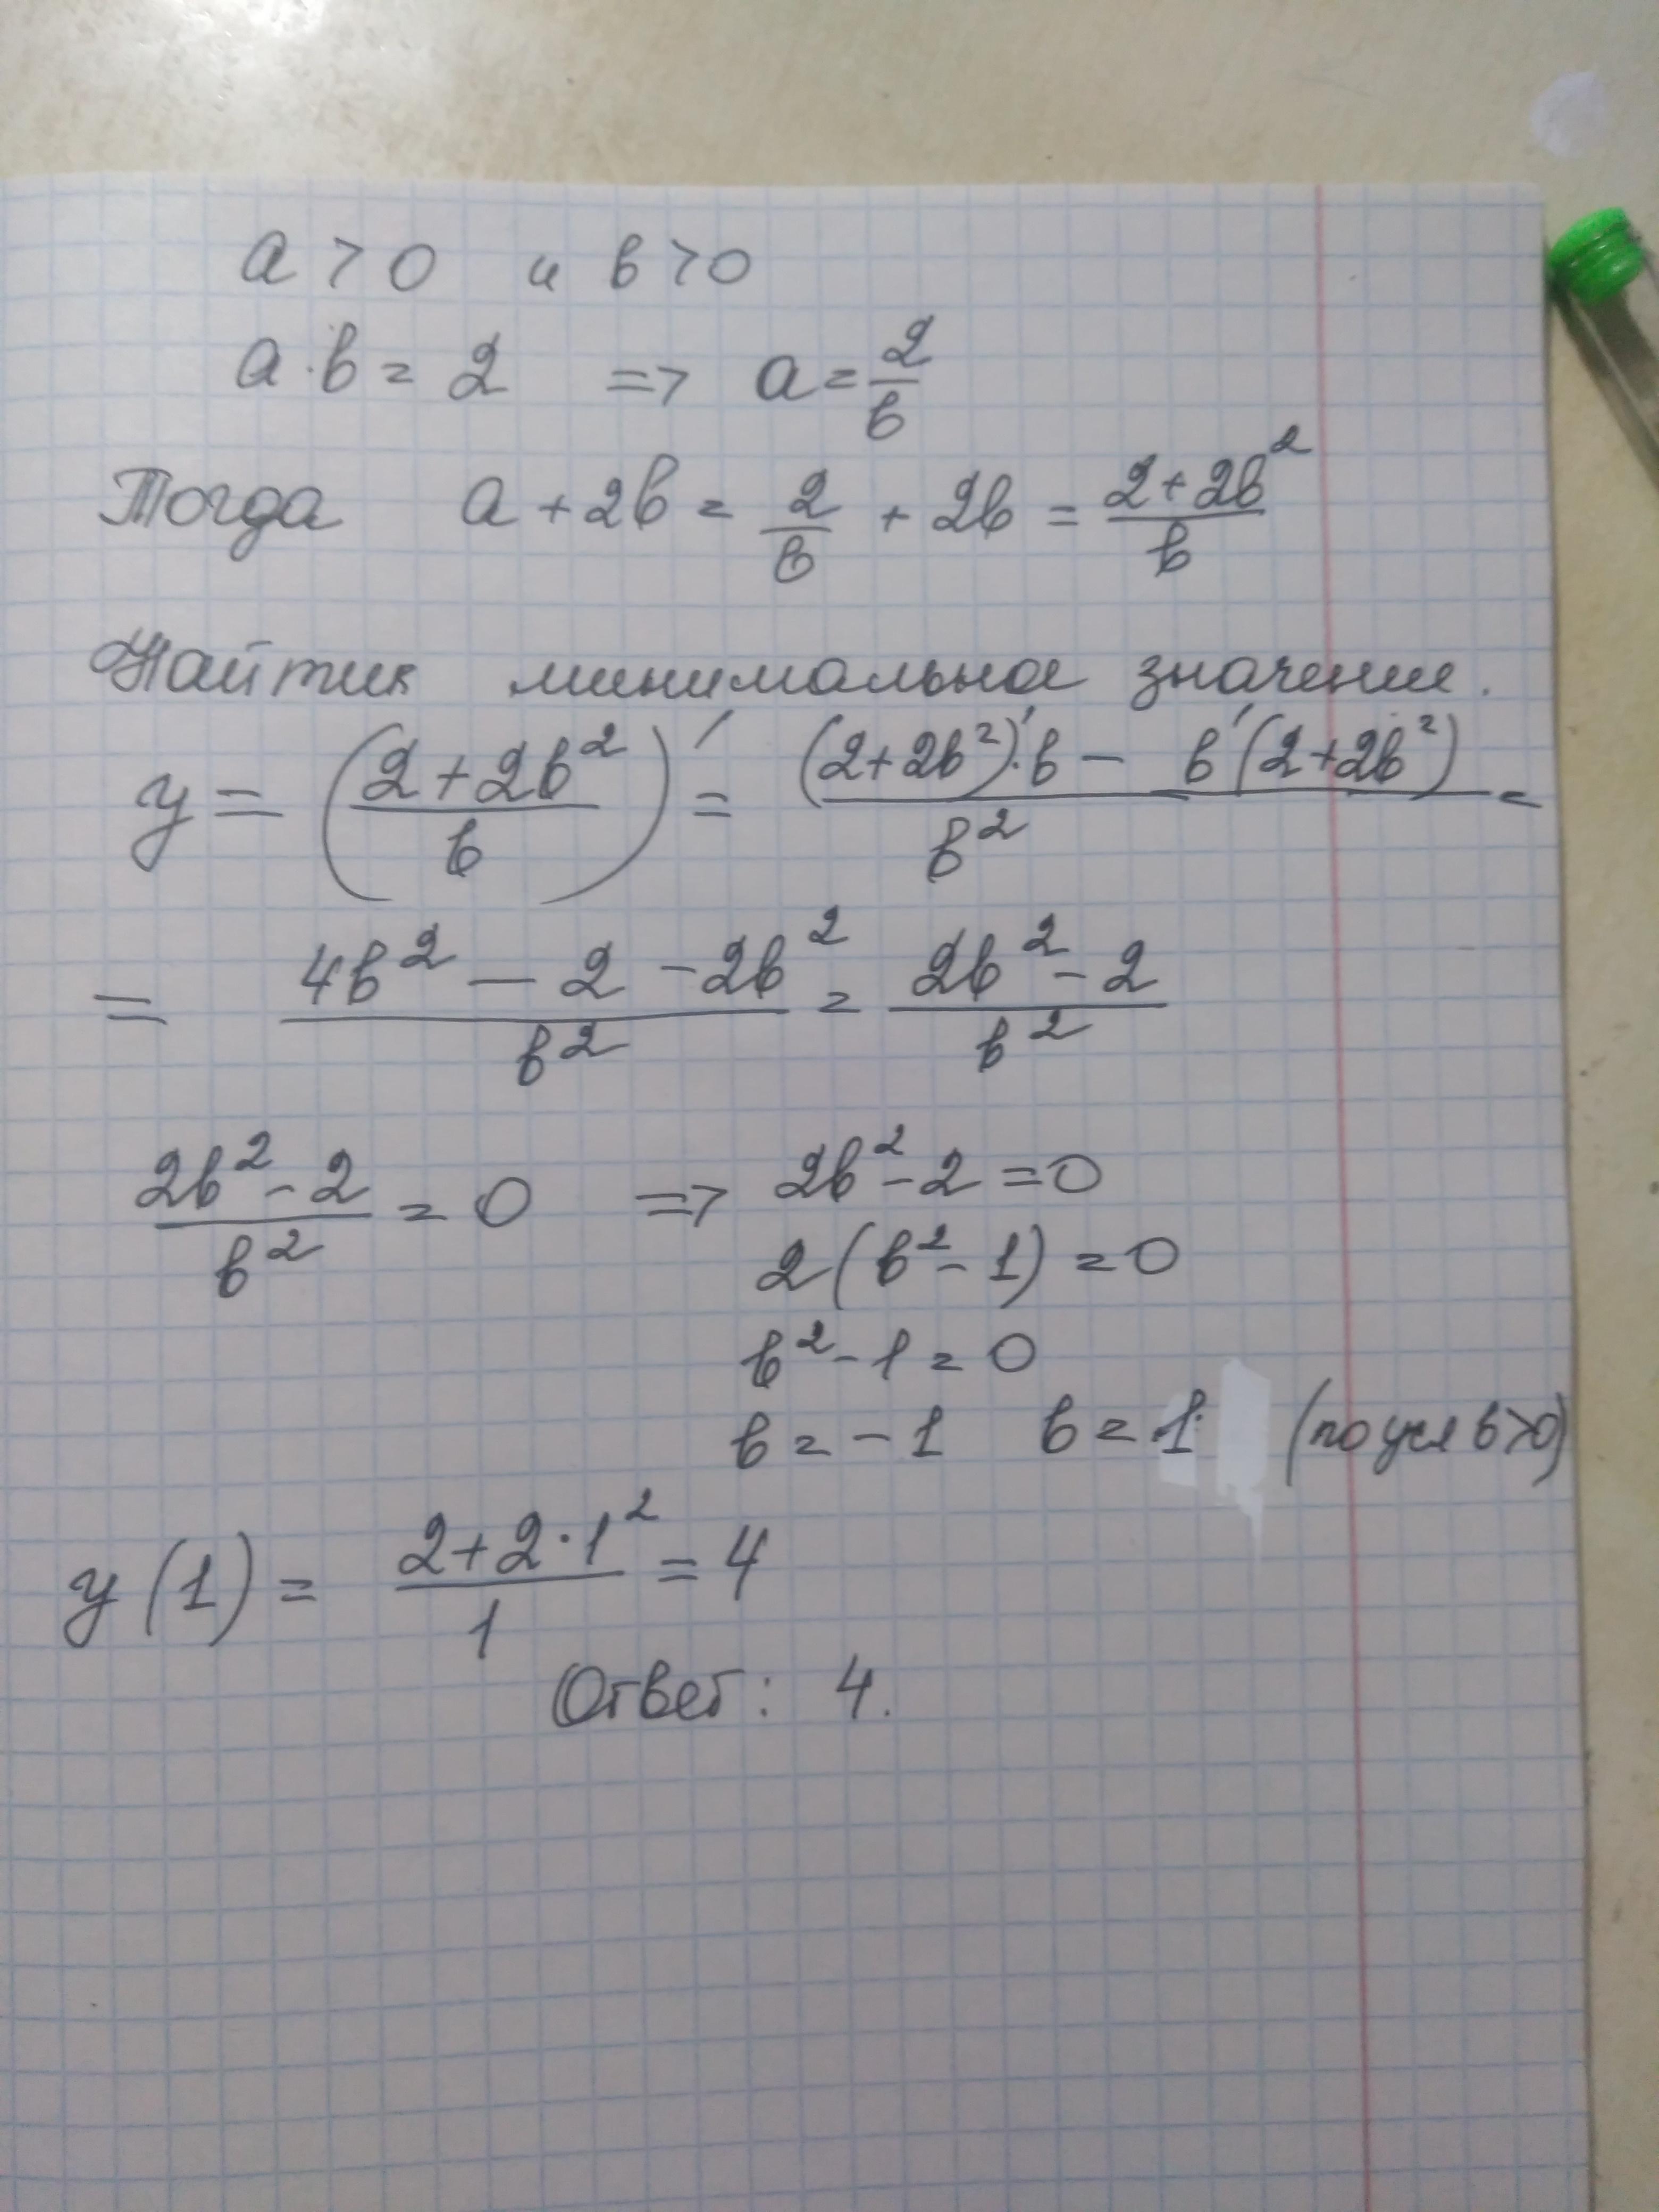 a > 0 и b > 0
a · b = 2 => a = 2/b
Тогда a + 2b = 2/b + 2b = (2+2b²)/b
Найти минимальное значение.
y = ((2+2b²)/b)′ = ((2+2b²)′·b − b′(2+2b²))/b² =
= (4b² − 2 − 2b²)/b² = (2b² − 2)/b²
(2b² − 2)/b² = 0 => 2b² − 2 = 0
2(b² − 1) = 0
b² − 1 = 0
b = −1 b = 1 (по усл b>0)
y(1) = (2+2·1²)/1 = 4
Ответ: 4.